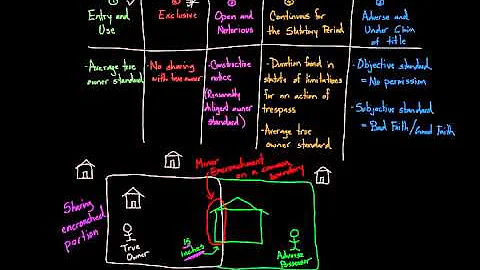 Entry and
Use
Exclusive
Open and
Notorious
Continuous for
the Statutory Period
Adverse and
Under Claim
of title
-Average true
owner standard
-No sharing
with true owner
-Constructive
notice
(Reasonably
diligent owner
standard)
-Duration found in
statute of limitations
for an action of
trespass
-Average true
owner standard
-Objective standard
=No permission
-Subjective standard
=Bad Faith/Good Faith
Minor
Encroachment
on a common
boundary
Sharing
encroached
portion
True
Owner
15
inches
Adverse
Possessor